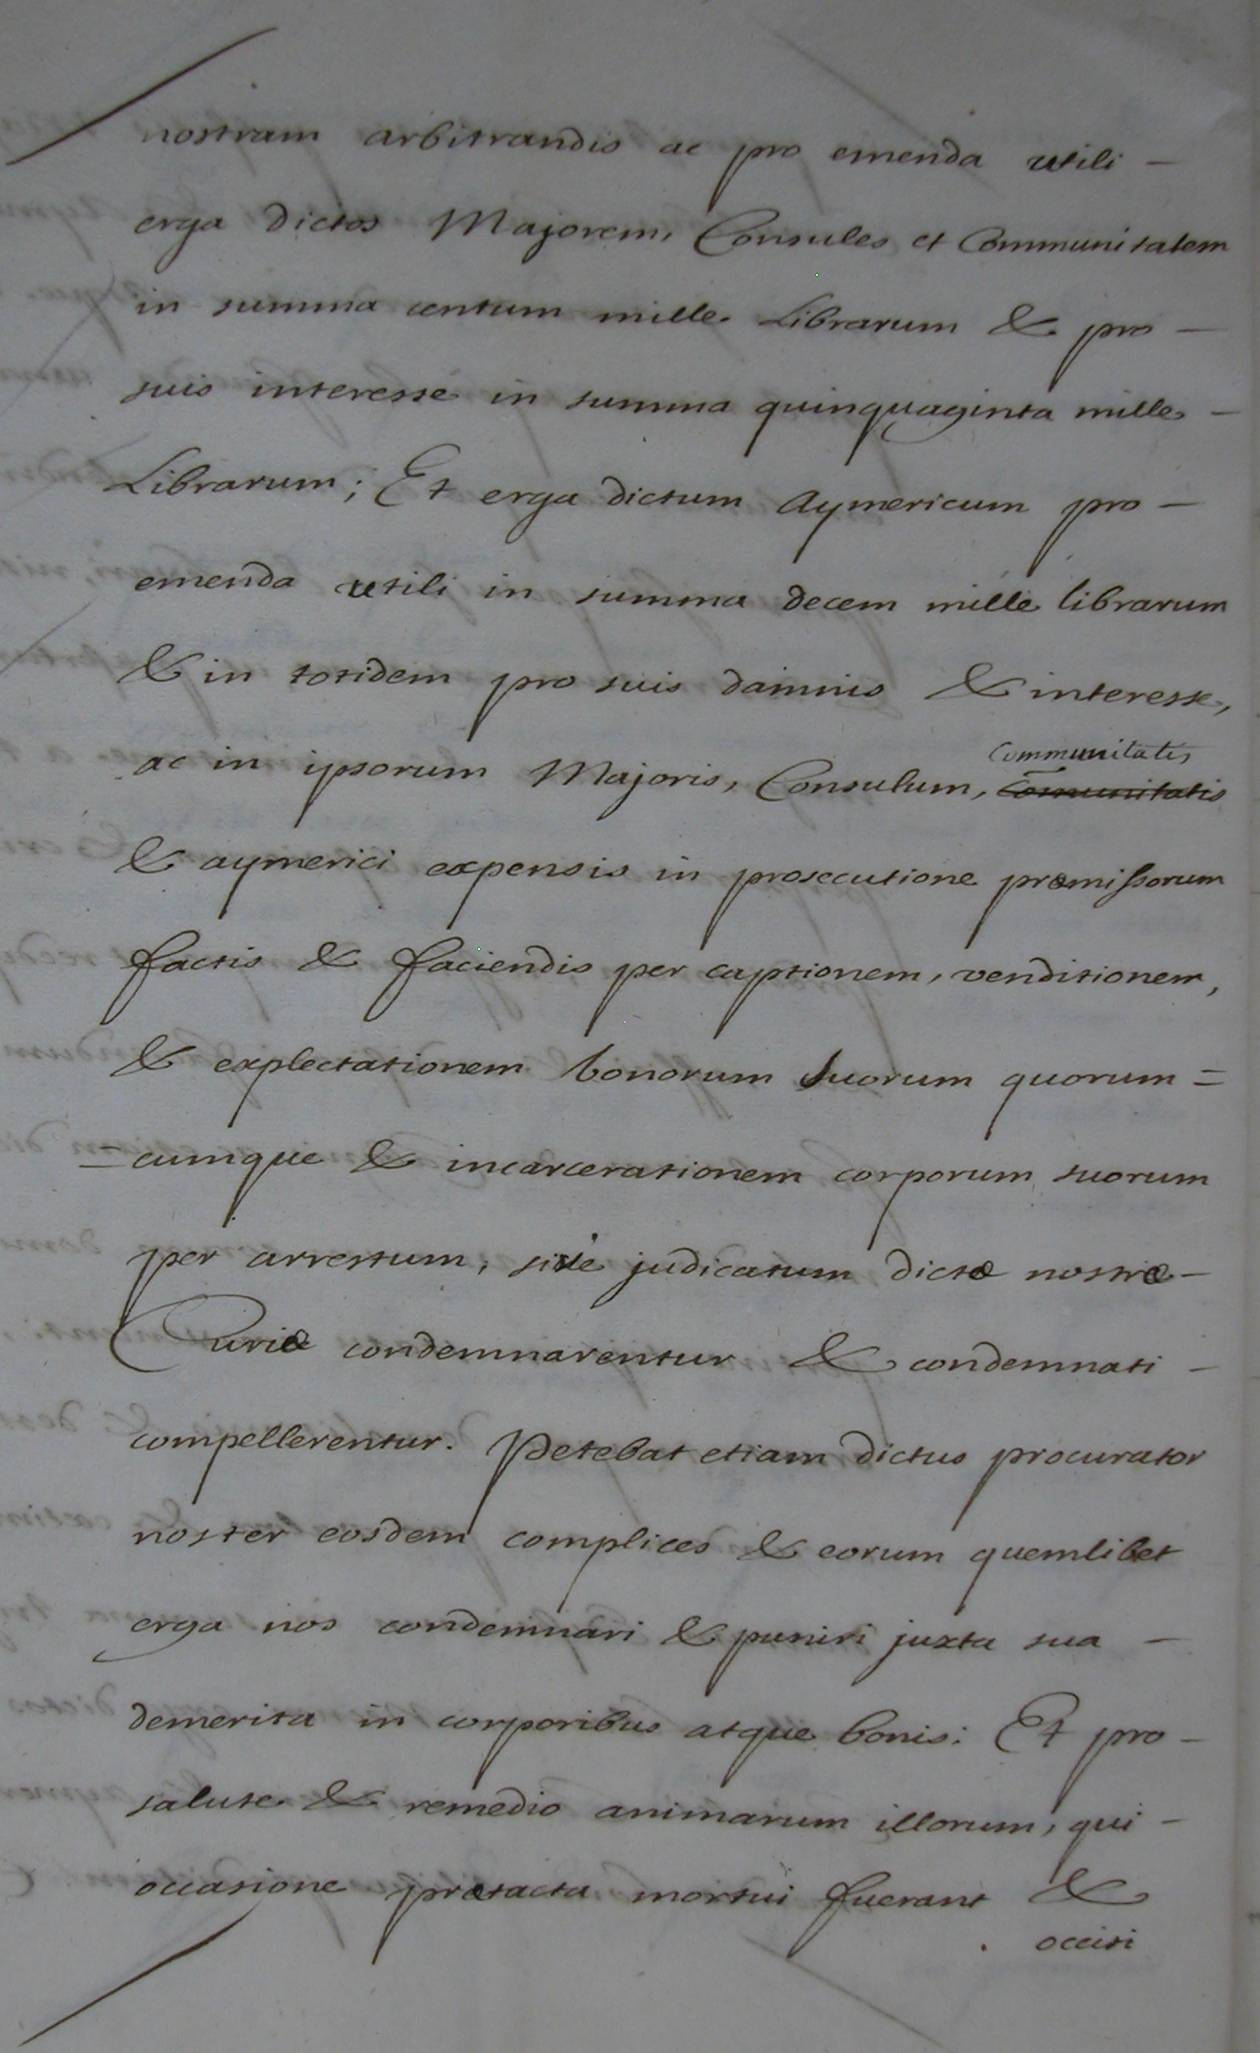 nostram arbitrandis ac pro emenda utili –
erga dictos Majorem, Consules et Communitatem
in summa centum mille Librarum & pro –
suis interesse in summa quinquaginta mille –
Librarum; Et erga dictum Aymericum pro –
emenda utili in summa decem mille librarum
& in totidem pro suis damnis & interesse,
Communitatis
ac in ipsorum Majoris, Consulum, Co̅munitatis
& aymerici expensis in prosecutione præmissorum
factis & faciendis per captionem, venditionem,
& explectationem bonorum suorum quorum=
=cumque & incarcerationem corporum suorum
per arrestum, sive judicatum dictæ nostræ –
Curiæ condemnarentur & condemnati –
compellerentur. Petebat etiam dictus procurator
noster eosdem complices & eorum quemlibet
erga nos condemnari & puniri juxta sua –
demerita in corporibus atque bonis: Et pro –
salute & remedio animarum illorum, qui –
occasione prætacta mortui fuerant &
occisi